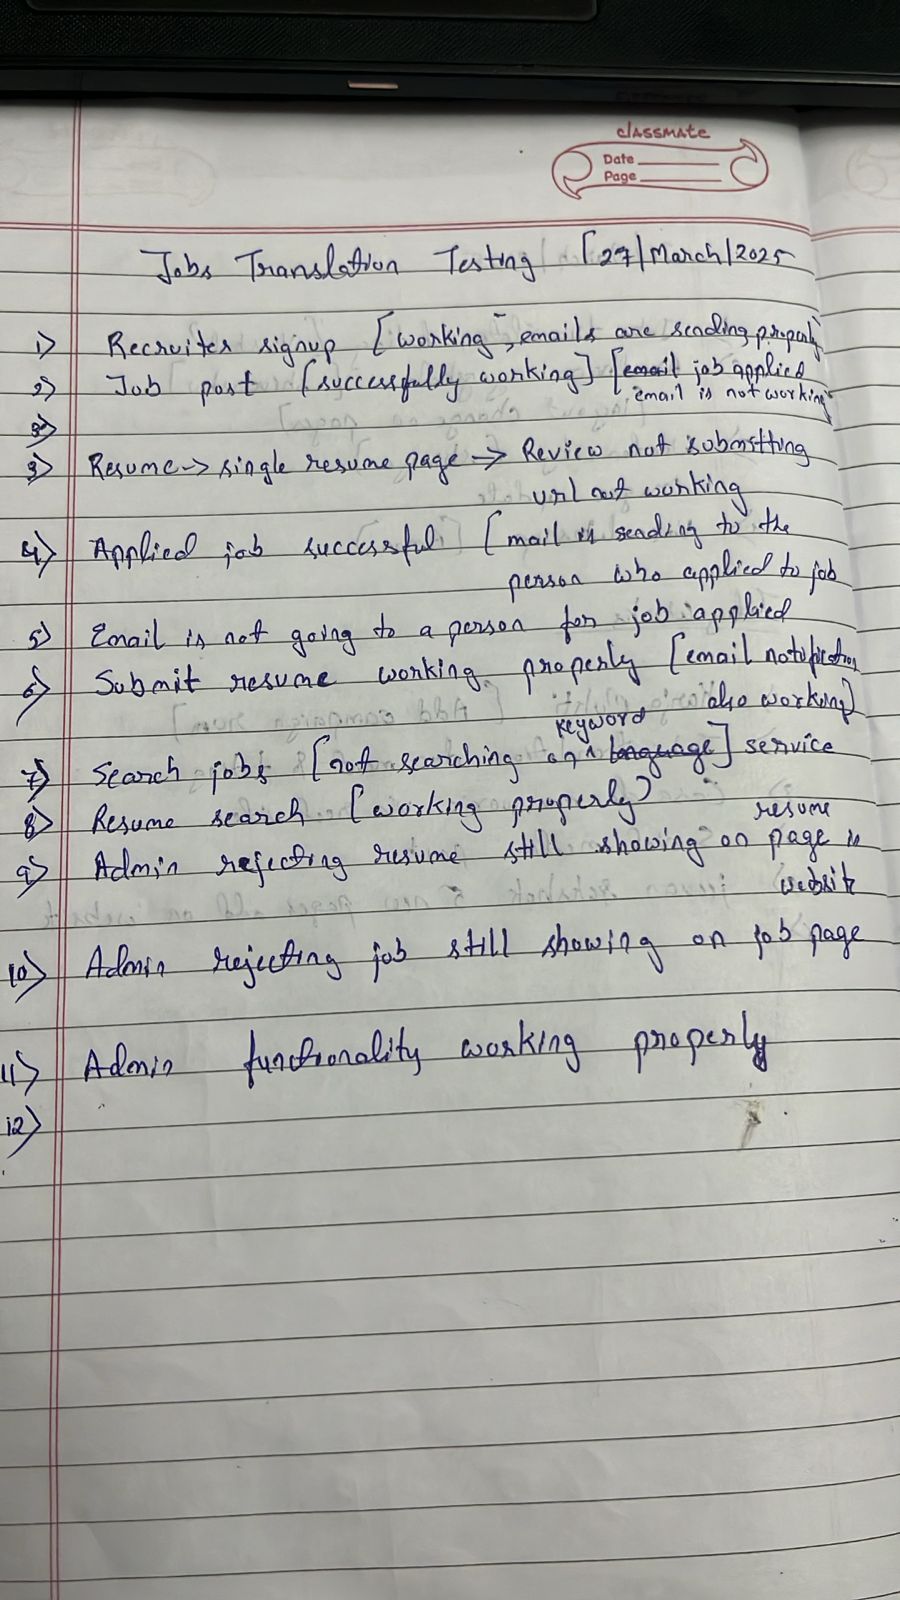 classmate
Date
Page
Jobs Translation Testing [27/March/2025
1) Recruiter signup [working, emails are sending properly
2) Job post [successfully working] [email job applied
email is not working
3)
3) Resume -> single resume page -> Review not submitting
url not working
4) Applied job successful [mail is sending to the
person who applied to job
5) Email is not going to a person for job applied
6) Submit resume working properly [email notification
also working]
keyword
7) Search jobs [not searching language] service
8) Resume search [working properly]
resume
9) Admin rejecting resume still showing on page in
website
10) Admin rejecting job still showing on job page
11) Admin functionality working properly
12)